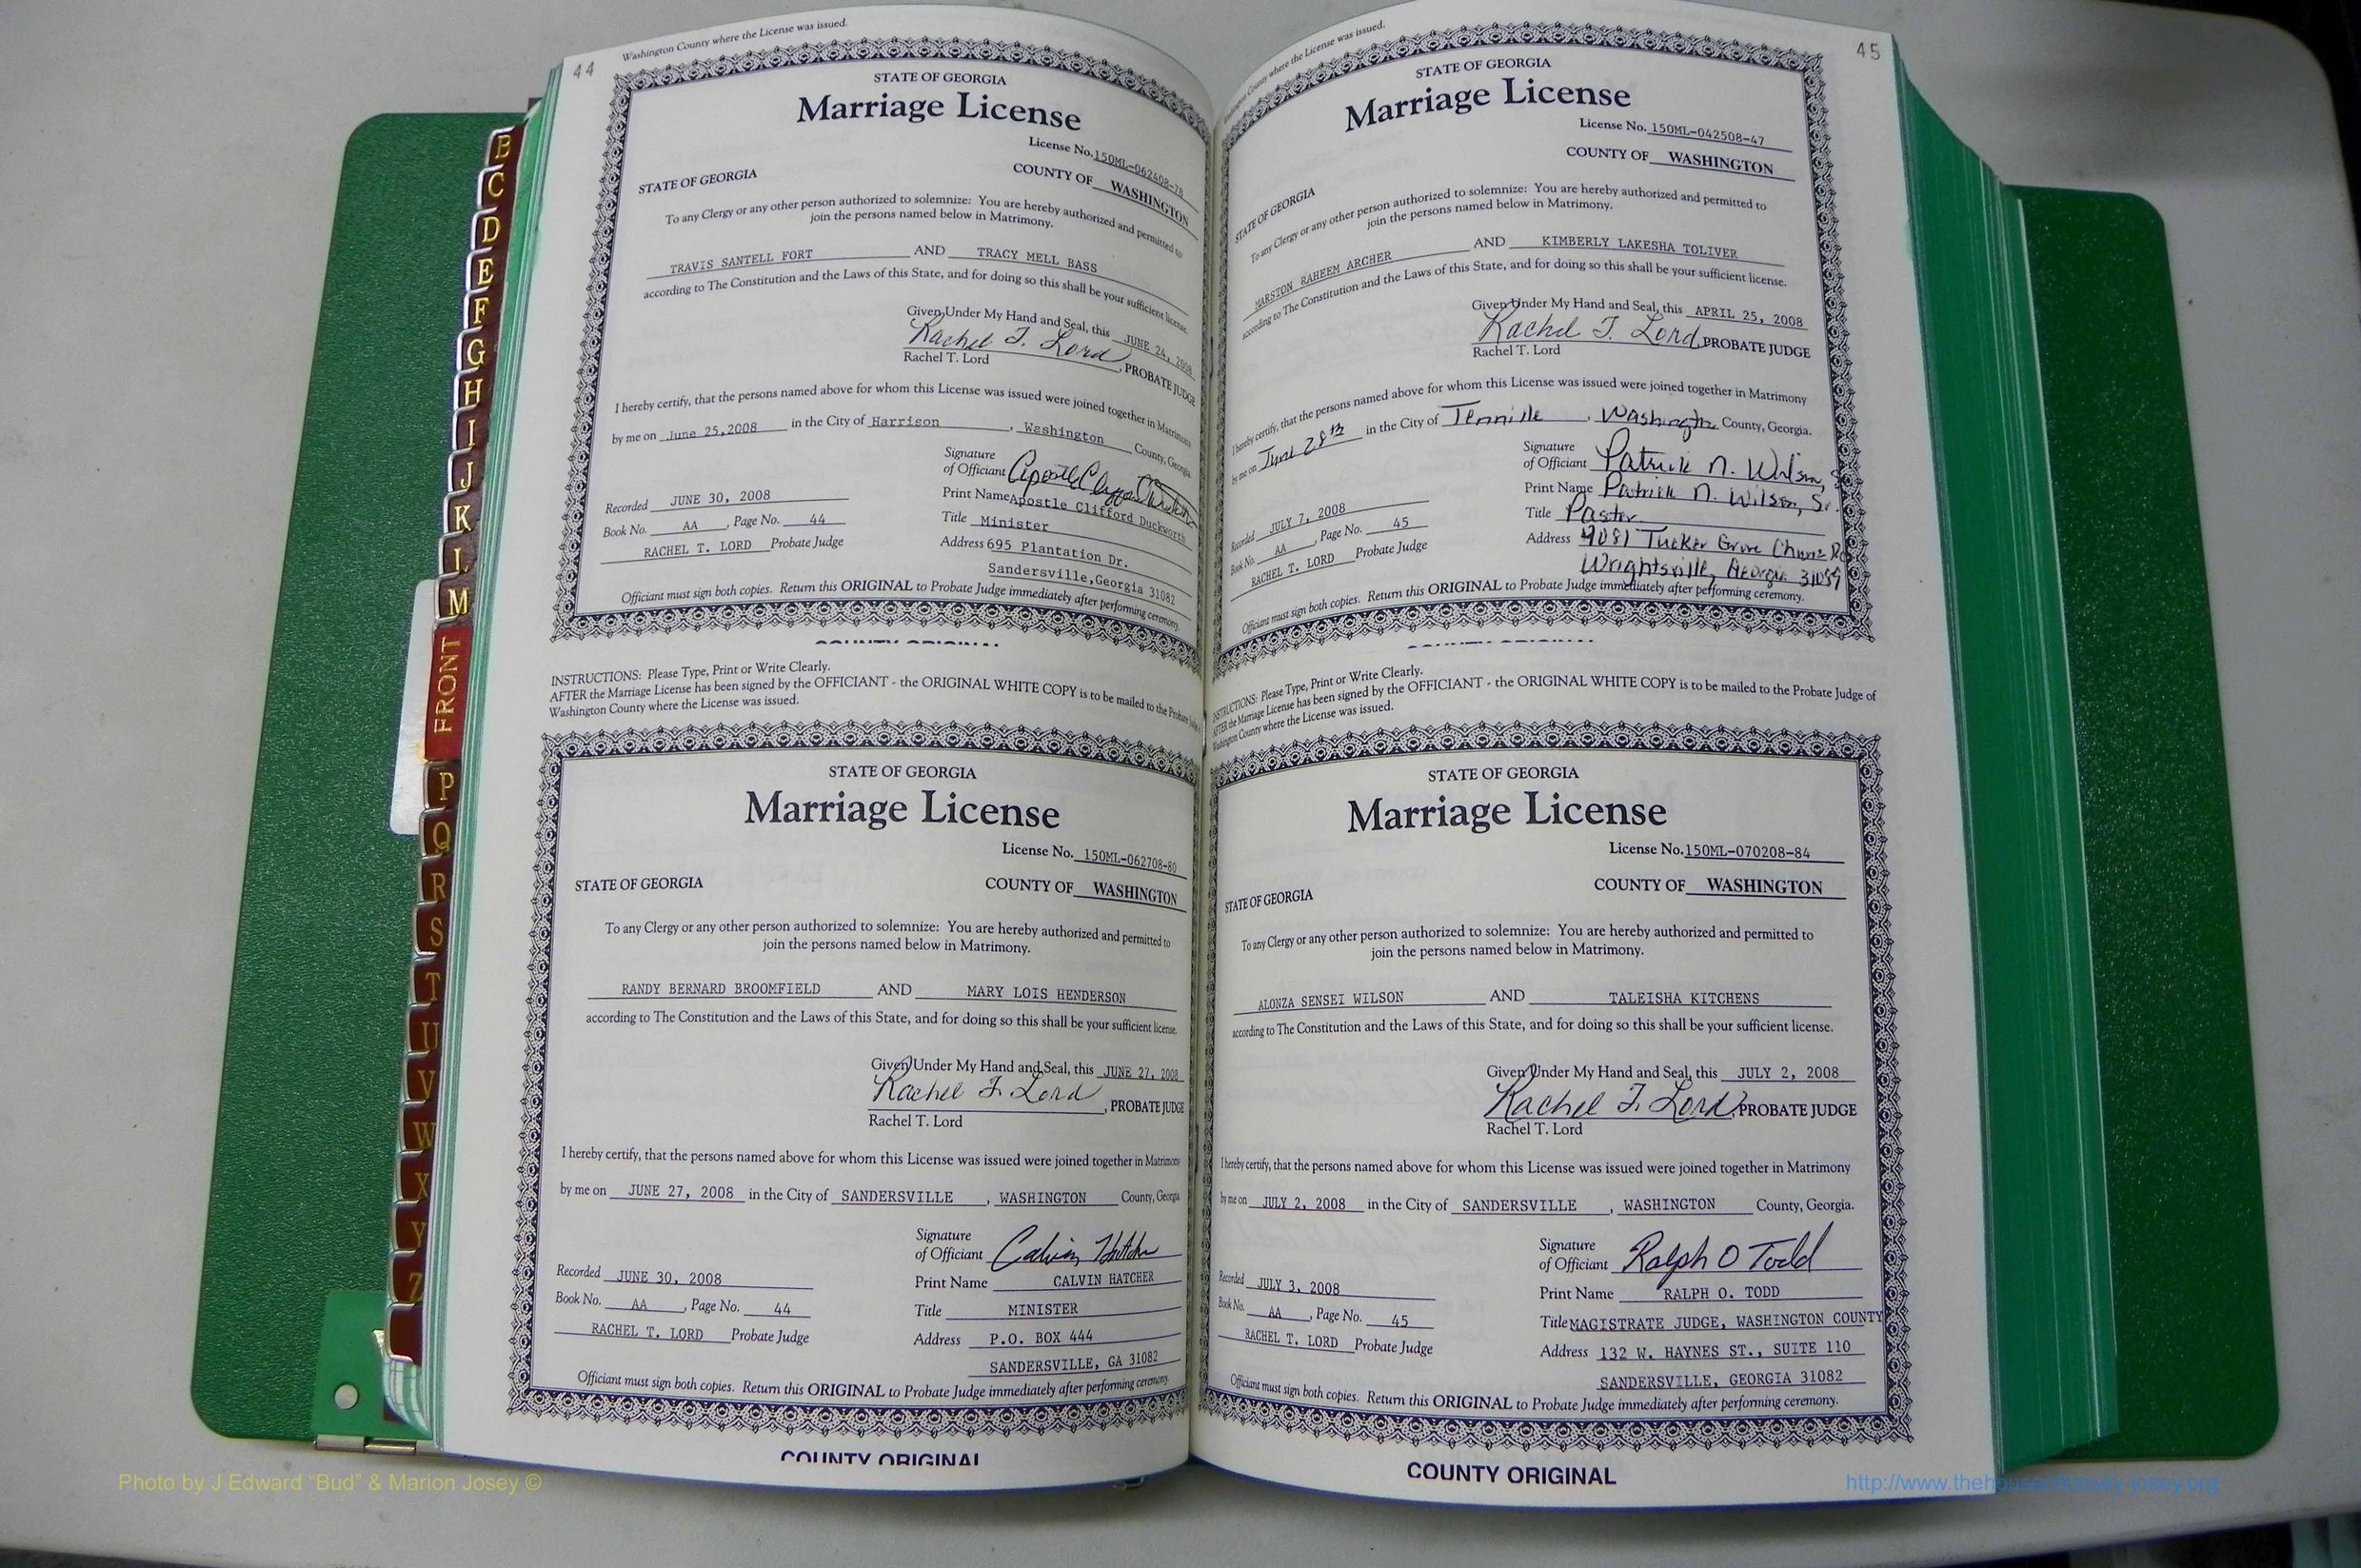 44
Washington County where the License was issued.
STATE OF GEORGIA
Marriage License
License No. 150ML-062408-78
STATE OF GEORGIA
COUNTY OF WASHINGTON
To any Clergy or any other person authorized to solemnize: You are hereby authorized and permitted to
join the persons named below in Matrimony.
TRAVIS SANTELL FORT AND TRACY MELL BASS
according to The Constitution and the Laws of this State, and for doing so this shall be your sufficient license.
Given Under My Hand and Seal, this JUNE 24, 2008
Rachel T. Lord, PROBATE JUDGE
Rachel T. Lord
I hereby certify, that the persons named above for whom this License was issued were joined together in Matrimony
by me on June 25,2008 in the City of Harrison, Washington County, Georgia.
Signature
of Officiant Apostle
Print Name Apostle Clifford Duckworth
Recorded JUNE 30, 2008
Title Minister
Book No. AA, Page No. 44
Address 695 Plantation Dr.
RACHEL T. LORD Probate Judge
Sandersville,Georgia 31082
Officiant must sign both copies. Return this ORIGINAL to Probate Judge immediately after performing ceremony.
COUNTY ORIGINAL
INSTRUCTIONS: Please Type, Print or Write Clearly.
AFTER the Marriage License has been signed by the OFFICIANT - the ORIGINAL WHITE COPY is to be mailed to the Probate
Washington County where the License was issued.
STATE OF GEORGIA
Marriage License
License No. 150ML-062708-80
STATE OF GEORGIA
COUNTY OF WASHINGTON
To any Clergy or any other person authorized to solemnize: You are hereby authorized and permitted to
join the persons named below in Matrimony.
RANDY BERNARD BROOMFIELD AND MARY LOIS HENDERSON
according to The Constitution and the Laws of this State, and for doing so this shall be your sufficient license.
Given Under My Hand and Seal, this JUNE 27, 2008
Rachel T. Lord, PROBATE JUDGE
Rachel T. Lord
I hereby certify, that the persons named above for whom this License was issued were joined together in Matrimony
by me on JUNE 27, 2008 in the City of SANDERSVILLE, WASHINGTON County, Georgia
Signature
of Officiant Calvin Hatcher
Recorded JUNE 30, 2008
Print Name CALVIN HATCHER
Book No. AA, Page No. 44
Title MINISTER
RACHEL T. LORD Probate Judge
Address P.O. BOX 444
SANDERSVILLE, GA 31082
Officiant must sign both copies. Return this ORIGINAL to Probate Judge immediately after performing ceremony.
COUNTY ORIGINAL
45
County where the License was issued.
STATE OF GEORGIA
Marriage License
License No. 150ML-042508-47
COUNTY OF WASHINGTON
STATE OF GEORGIA
To any Clergy or any other person authorized to solemnize: You are hereby authorized and permitted to
join the persons named below in Matrimony.
MARSTON RAHEEM ARCHER AND KIMBERLY LAKESHA TOLIVER
according to The Constitution and the Laws of this State, and for doing so this shall be your sufficient license.
Given Under My Hand and Seal, this APRIL 25, 2008
Rachel T. Lord, PROBATE JUDGE
Rachel T. Lord
I hereby certify, that the persons named above for whom this License was issued were joined together in Matrimony
by me on June 28th in the City of Tennille, Washington County, Georgia.
Signature
of Officiant Patrick N. Wilson, S
Print Name Patrick N. Wilson, Sr.
Recorded JULY 7, 2008
Title Pastor
Book No. AA, Page No. 45
Address 4081 Tucker Grove Church Rd
RACHEL T. LORD Probate Judge
Wrightsville, Georgia 31089
Officiant must sign both copies. Return this ORIGINAL to Probate Judge immediately after performing ceremony.
COUNTY ORIGINAL
INSTRUCTIONS: Please Type, Print or Write Clearly.
AFTER the Marriage License has been signed by the OFFICIANT - the ORIGINAL WHITE COPY is to be mailed to the Probate Judge of
Washington County where the License was issued.
STATE OF GEORGIA
Marriage License
License No. 150ML-070208-84
STATE OF GEORGIA
COUNTY OF WASHINGTON
To any Clergy or any other person authorized to solemnize: You are hereby authorized and permitted to
join the persons named below in Matrimony.
ALONZA SENSEI WILSON AND TALEISHA KITCHENS
according to The Constitution and the Laws of this State, and for doing so this shall be your sufficient license.
Given Under My Hand and Seal, this JULY 2, 2008
Rachel T. Lord, PROBATE JUDGE
Rachel T. Lord
I hereby certify, that the persons named above for whom this License was issued were joined together in Matrimony
by me on JULY 2, 2008 in the City of SANDERSVILLE, WASHINGTON County, Georgia.
Signature
of Officiant Ralph O Todd
Recorded JULY 3, 2008
Print Name RALPH O. TODD
Book No. AA, Page No. 45
Title MAGISTRATE JUDGE, WASHINGTON COUNTY
RACHEL T. LORD Probate Judge
Address 132 W. HAYNES ST., SUITE 110
SANDERSVILLE, GEORGIA 31082
Officiant must sign both copies. Return this ORIGINAL to Probate Judge immediately after performing ceremony.
COUNTY ORIGINAL
B
C
D
E
F
G
H
I
J
K
L
M
FRONT
P
Q
R
S
T
U
V
W
X
Y
Z
Photo by J Edward “Bud” & Marion Josey ©
http://www.thehouseofjossey-josey.org